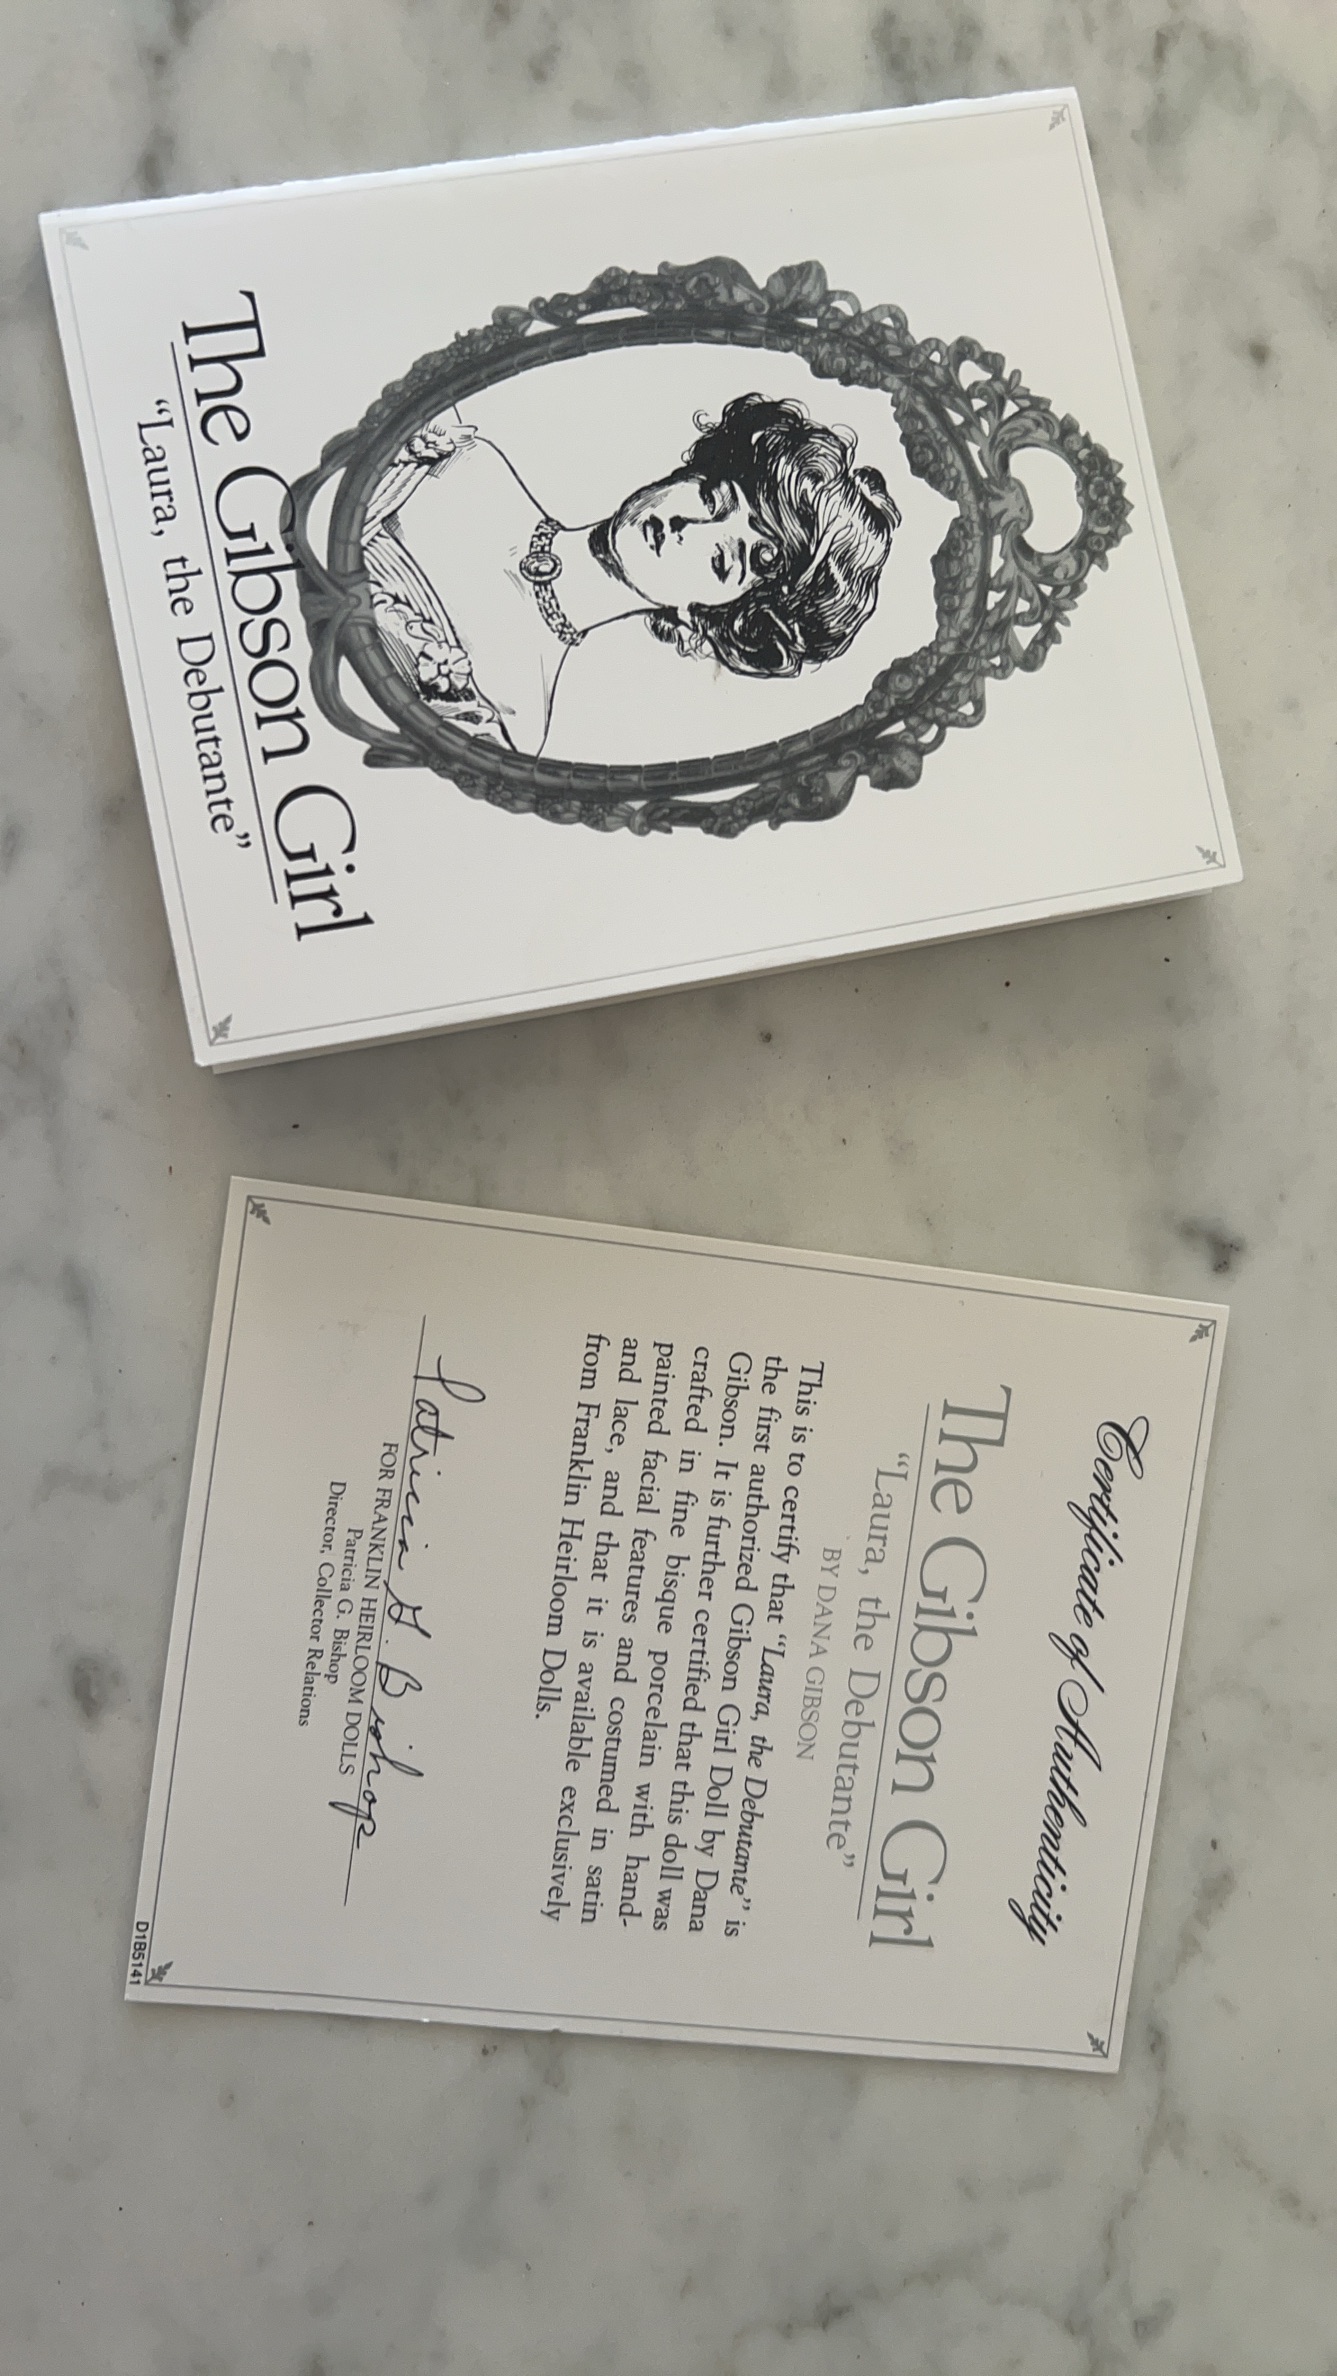 The Gibson Girl
“Laura, the Debutante”
Certificate of Authenticity
The Gibson Girl
“Laura, the Debutante”
BY DANA GIBSON
This is to certify that “Laura, the Debutante” is
the first authorized Gibson Girl Doll by Dana
Gibson. It is further certified that this doll was
crafted in fine bisque porcelain with hand-
painted facial features and costumed in satin
and lace, and that it is available exclusively
from Franklin Heirloom Dolls.
Patricia G. Bishop
FOR FRANKLIN HEIRLOOM DOLLS
Patricia G. Bishop
Director, Collector Relations
D1B5141